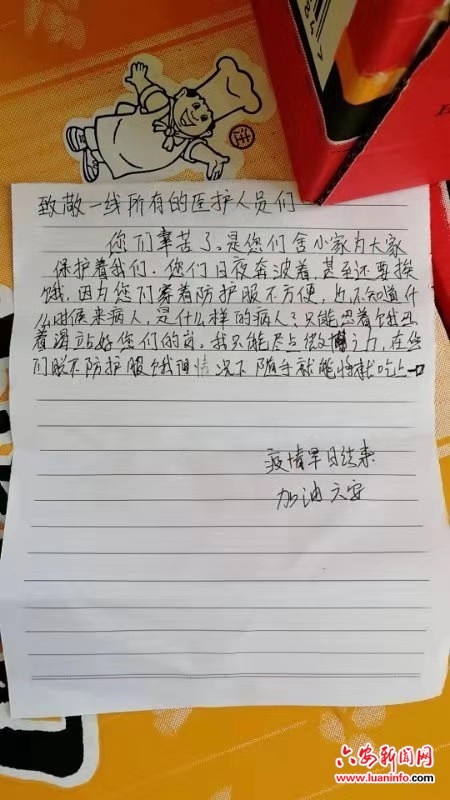 致敬一线所有的医护人员们
您们辛苦了。是您们舍小家为大家
保护着我们。您们日夜奔波着,甚至还要挨
饿,因为您们穿着防护服不方便,也不知道什
么时候来病人,是什么样的病人?只能忍着饿忍
着渴站好您们的岗。我只能尽点微博之力,在您
们脱不防护服饿的情况下随手就能将就吃上一口
疫情早日结束
加油六安
六安新闻网
www.luaninfo.com